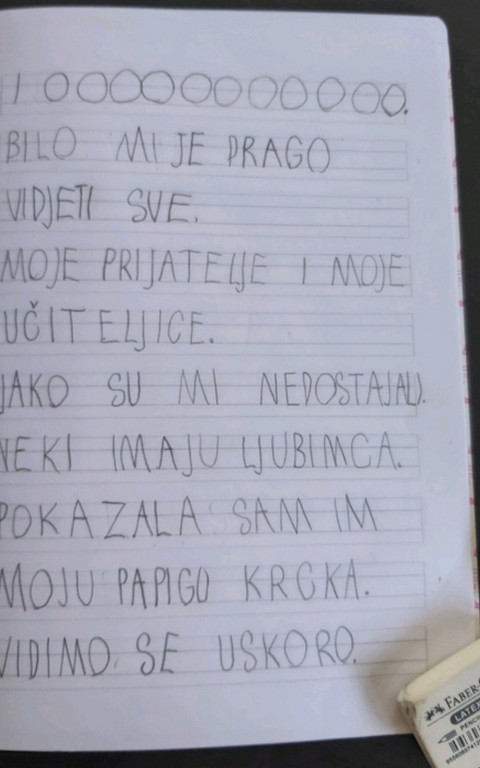 1 00000000000.
BILO MI JE DRAGO
VIDJETI SVE.
MOJE PRIJATELJE I MOJE
UČITELJICE.
JAKO SU MI NEDOSTAJALI.
NEKI IMAJU LJUBIMCA.
POKAZALA SAM IM
MOJU PAPIGU KRCKA.
VIDIMO SE USKORO.
FABER